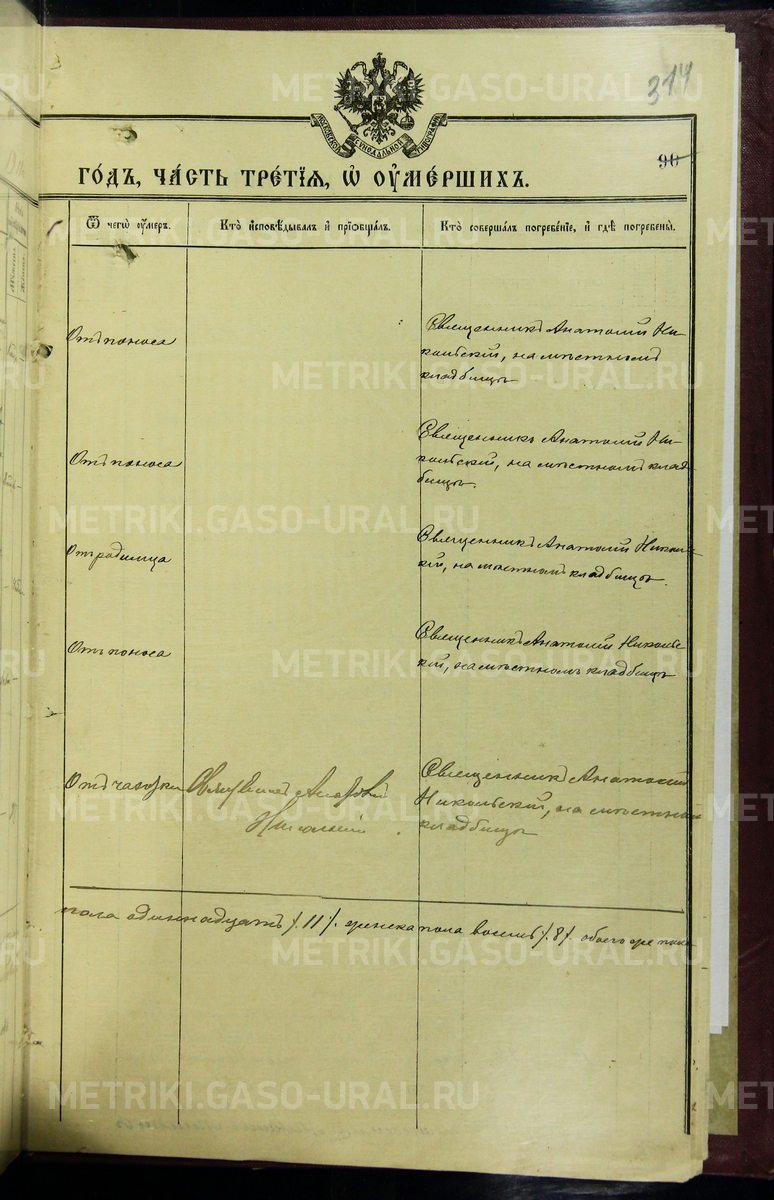 314
МОСКОВСКОЙ СѴНОДАЛЬНОЙ ТИПОГРАФІИ
90
ГО́ДЪ, ЧА́СТЬ ТРЕ́ТІѦ, Ѡ҆ ОУ҆МЕ́РШИХЪ.
Ѿ чегѡ̀ оу҆́меръ.
Кто̀ и҆сповѣ́дывалъ и҆ прїѡбща́лъ.
Кто̀ соверша́лъ погребе́нїе, и҆ гдѣ̀ погребены̀.
Отъ поноса
Священникъ Анатолій Ни-
кольскій, на мѣстномъ
кладбищѣ
Отъ поноса
Священникъ Анатолій Ни-
кольскій, на мѣстномъ клад-
бищѣ.
Отъ родимца
Священникъ Анатолій Николь-
кій, на мѣстномъ кладбищѣ.
Отъ поноса
Священникъ Анатолій Никольс
кій, на мѣстномъ кладбищѣ
Отъ чахотки
Священникъ Анатолій
Никольскій
Священникъ Анатолій
Никольскій, на мѣстномъ
кладбищѣ
пола одиннадцать /.11/. женска пола восемь /.8/. обоего же пола
METRIKI.GASO-URAL.RU